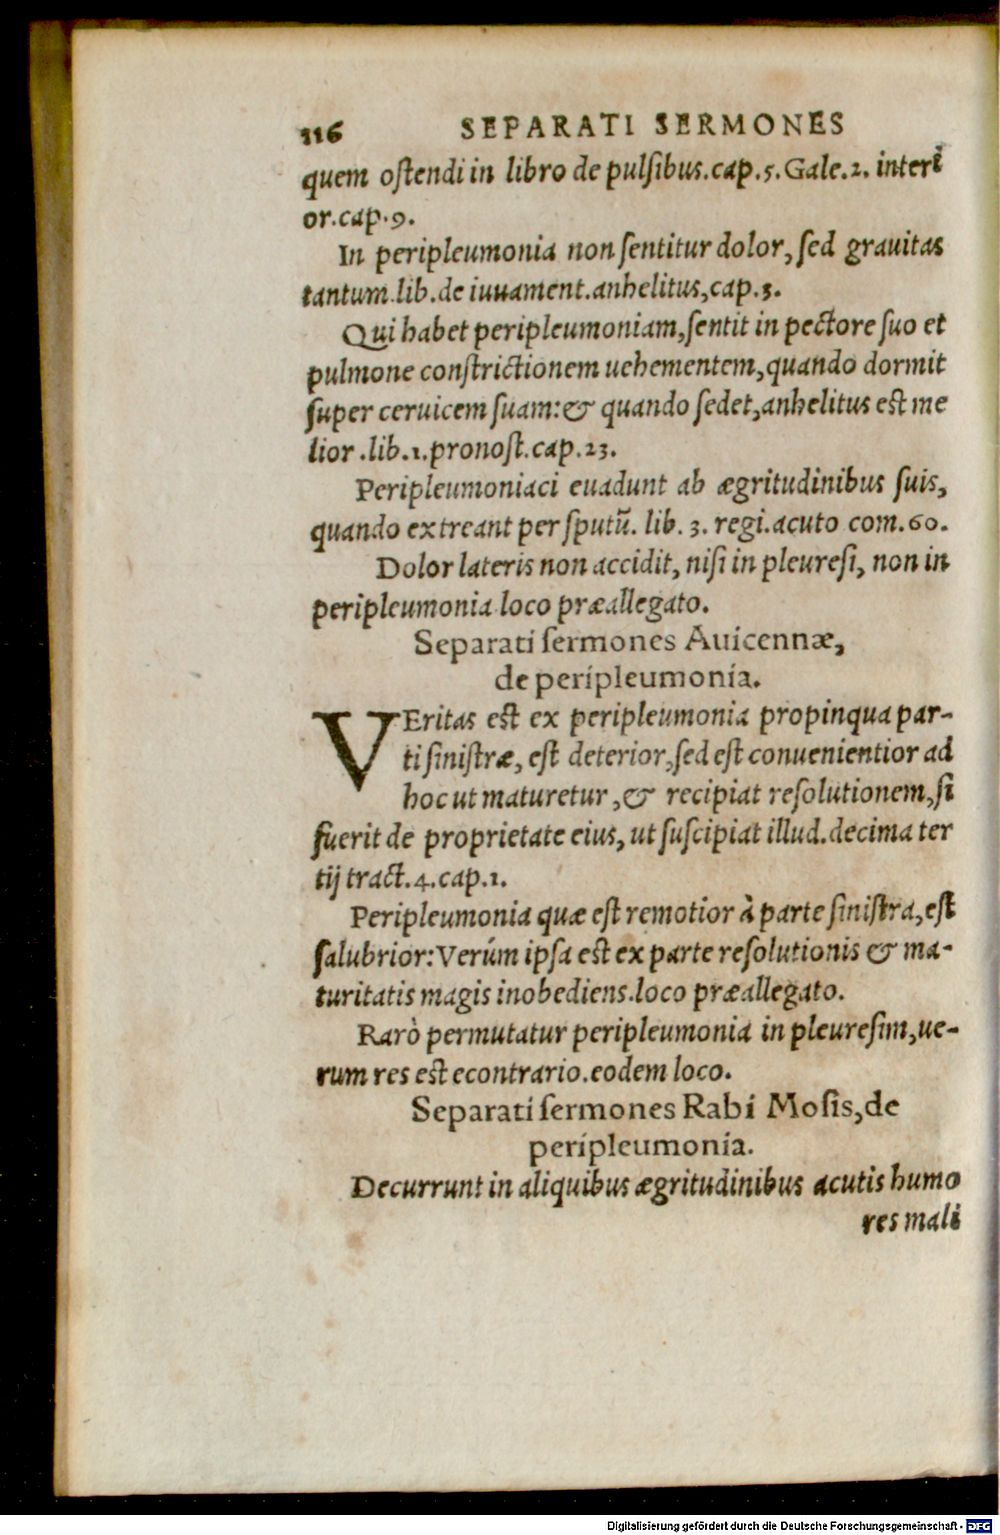 116 SEPARATI SERMONES
quem ostendi in libro de pulsibus.cap.5.Gale.2. interi
or.cap.9.
In peripleumonia non sentitur dolor, sed grauitas
tantum.lib.de iuuament.anhelitus,cap.3.
Qui habet peripleumoniam,sentit in pectore suo et
pulmone constrictionem uehementem,quando dormit
super ceruicem suam:& quando sedet,anhelitus est me
lior .lib.1.pronost.cap.23.
Peripleumoniaci euadunt ab ægritudinibus suis,
quando extreant per sputū. lib. 3. regi.acuto com.60.
Dolor lateris non accidit, nisi in pleuresi, non in
peripleumonia loco præallegato.
Separati sermones Auicennæ,
de peripleumonia.
VEritas est ex peripleumonia propinqua par-
ti sinistræ, est deterior,sed est conuenientior ad
hoc ut maturetur ,& recipiat resolutionem,si
fuerit de proprietate eius, ut suscipiat illud.decima ter
tij tract.4.cap.1.
Peripleumonia quæ est remotior à parte sinistra,est
salubrior:Verúm ipsa est ex parte resolutionis & ma-
turitatis magis inobediens.loco præallegato.
Rarò permutatur peripleumonia in pleuresim,ue-
rum res est econtrario.eodem loco.
Separati sermones Rabi Mosis,de
peripleumonia.
Decurrunt in aliquibus ægritudinibus acutis humo
res mali
Digitalisierung gefördert durch die Deutsche Forschungsgemeinschaft - DFG